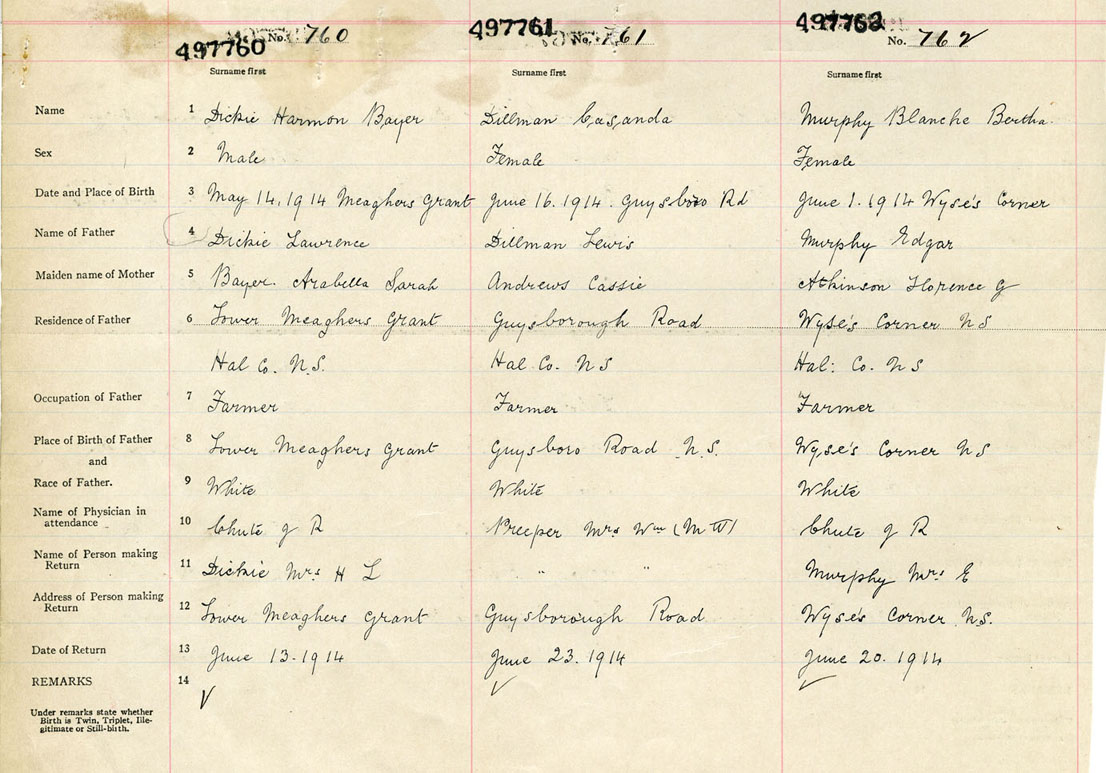 497760 No. 760 497761 No. 761 497762 No. 762
Surname first Surname first Surname first
Name 1 Dickie Harmon Bayer Dillman Casanda Murphy Blanche Bertha.
Sex 2 Male Female Female
Date and Place of Birth 3 May 14, 1914 Meaghers Grant June 16. 1914. Guysboro Rd June 1. 1914 Wyse's Corner
Name of Father 4 Dickie Lawrence Dillman Lewis Murphy Edgar
Maiden name of Mother 5 Bayer. Arabella Sarah Andrews Cassie Atkinson Florence J
Residence of Father 6 Lower Meaghers Grant Guysborough Road Wyse's Corner NS
Hal Co. N.S. Hal. Co. NS Hal: Co. NS
Occupation of Father 7 Farmer Farmer Farmer
Place of Birth of Father 8 Lower Meaghers Grant Guysboro Road N.S. Wyse's Corner NS
and
Race of Father. 9 White White White
Name of Physician in
attendance 10 Chute J R Preeper Mrs Wm (M W) Chute J R
Name of Person making
Return 11 Dickie Mrs H L " " Murphy Mrs E
Address of Person making
Return 12 Lower Meaghers Grant Guysborough Road Wyse's Corner N.S.
Date of Return 13 June 13. 1914 June 23. 1914 June 20. 1914
REMARKS 14 ✓ ✓ ✓
Under remarks state whether
Birth is Twin, Triplet, Ille-
gitimate or Still-birth.